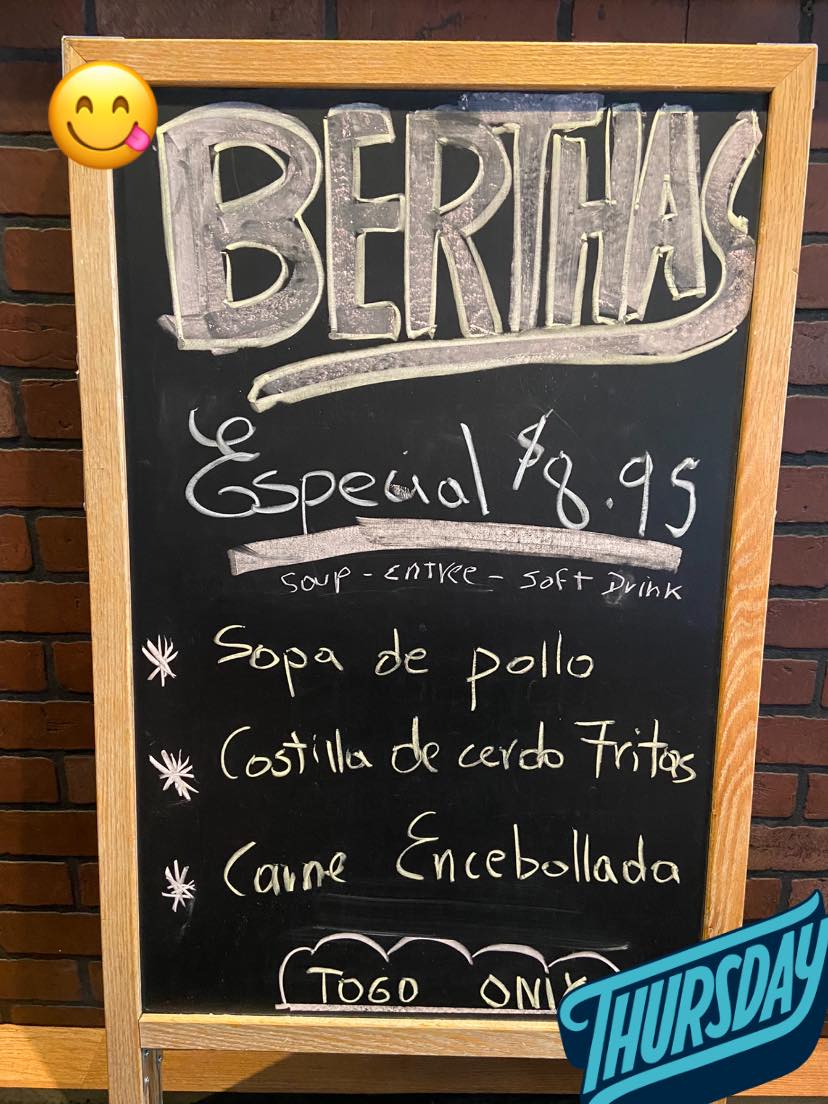 BERTHAS
Especial $8.95
Soup - entree - Soft Drink
* Sopa de pollo
* Costilla de cerdo Fritas
* Carne Encebollada
TOGO ONLY
THURSDAY